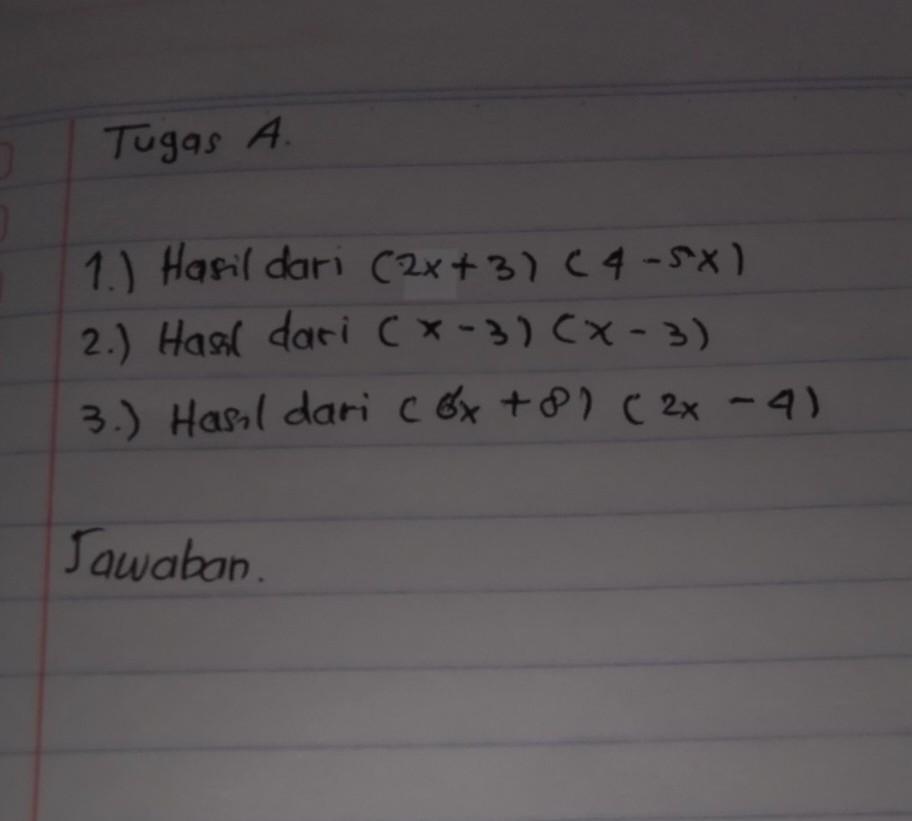 Tugas A.
1.) Hasil dari (2x+3) (4-5x)
2.) Hasil dari (x-3) (x-3)
3.) Hasil dari (6x +8) (2x -4)
Jawaban.